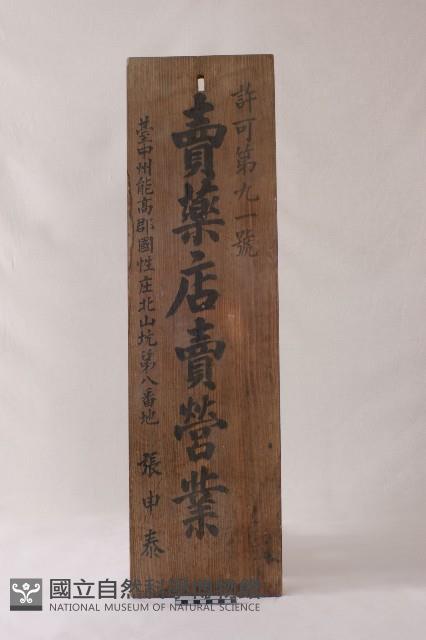 許可第九一號
賣藥店賣營業
臺中州能高郡國性庄北山坑第八番地 張申泰
國立自然科學博物館
NATIONAL MUSEUM OF NATURAL SCIENCE